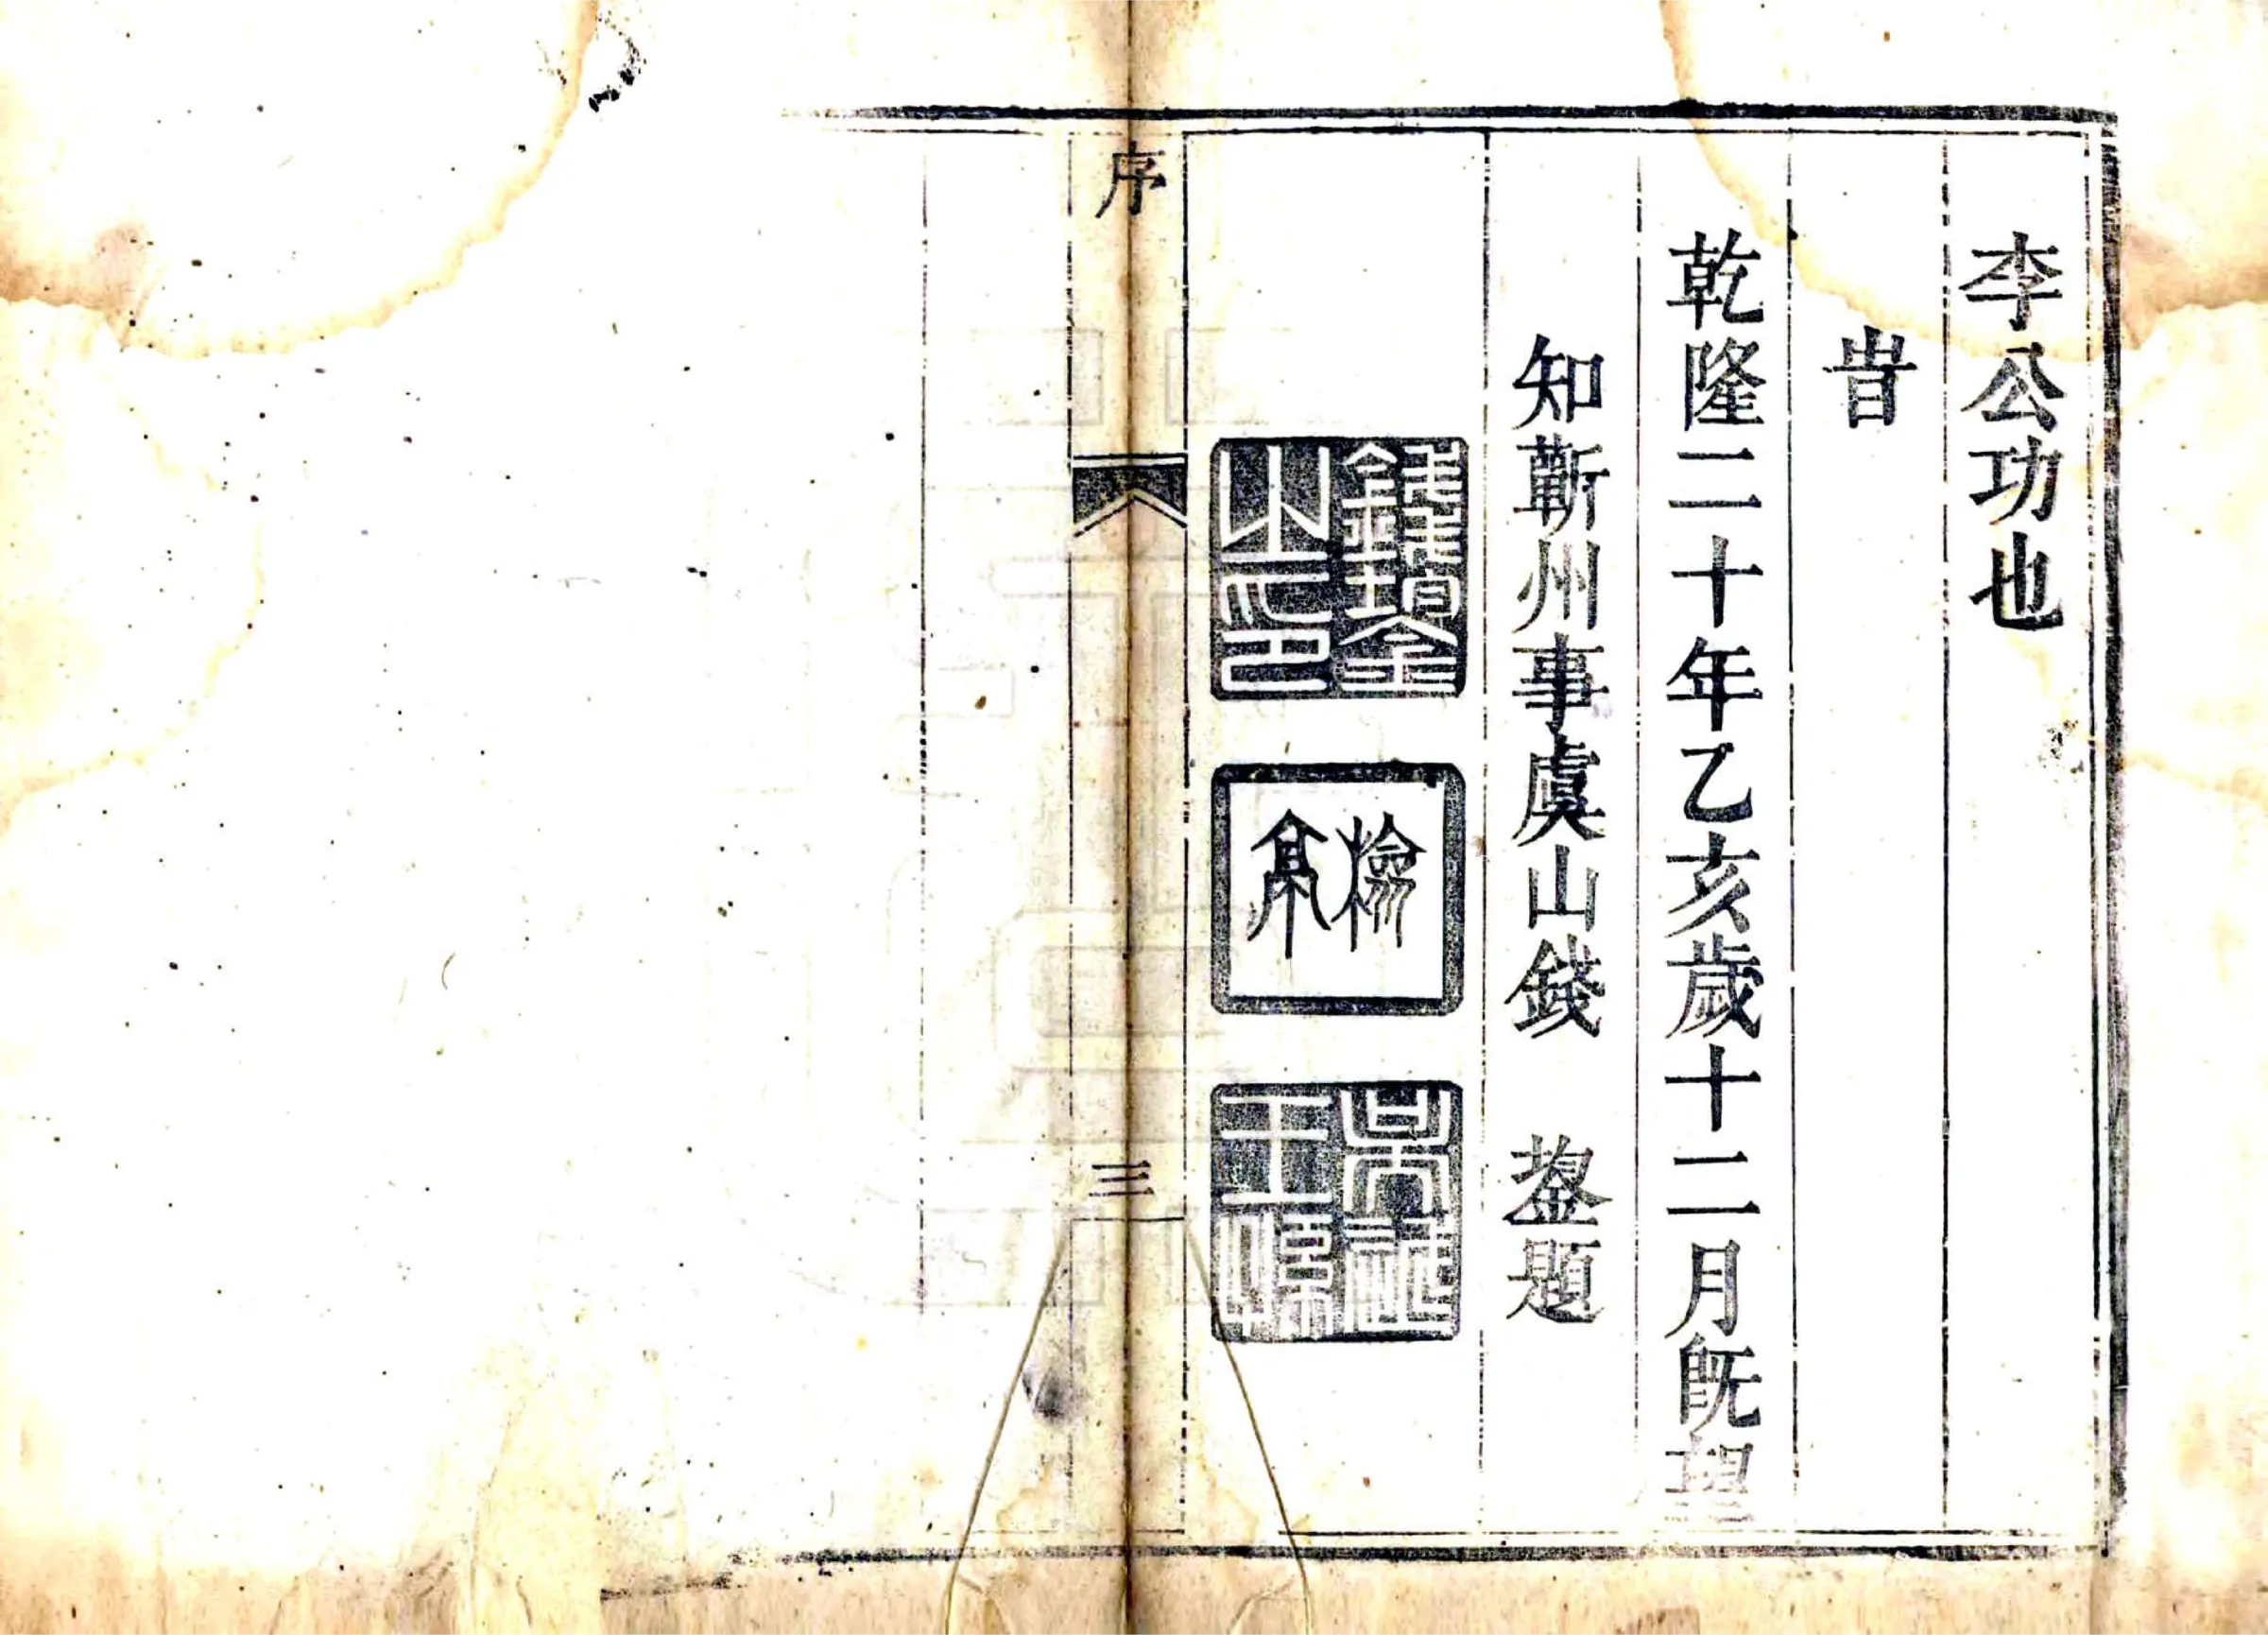 李公功也
旹
乾隆二十年乙亥歲十二月旣望
知蘄州事虞山錢　鋆題
錢鋆之印
序
三